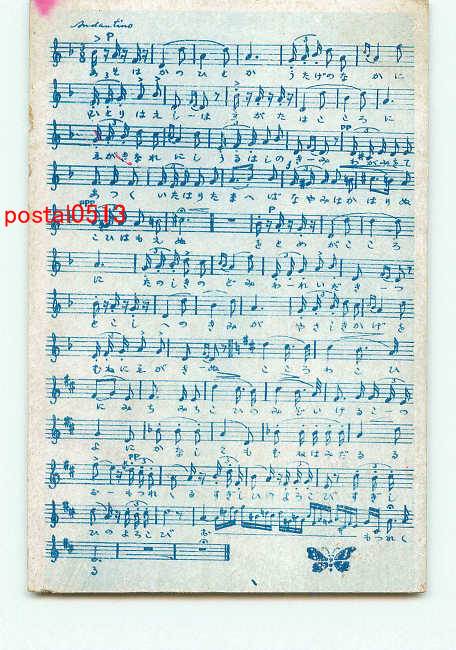 Andantino
P
あるはかつひとか うたげのなかに
ひとりはえしーは すがたはこころに
pp
えがきなれにし うるはしのきーみ わがみをて
あつく いたはりたまへば なやみはかはりぬ
ppp
postal0513
こひはもえぬ をとめがこころ
に たのしきの どみ わーれいだきーつ
とこしへつ きみが やさしきかげを
むねにえがきーぬ こころわこひ
にみちみちこひつみどいけるこーつ
よに かなし こともむねはみだるる
pp
かーもつれくる すぎしひのよろこび すぎし
ひのよろこび む もつれく
3